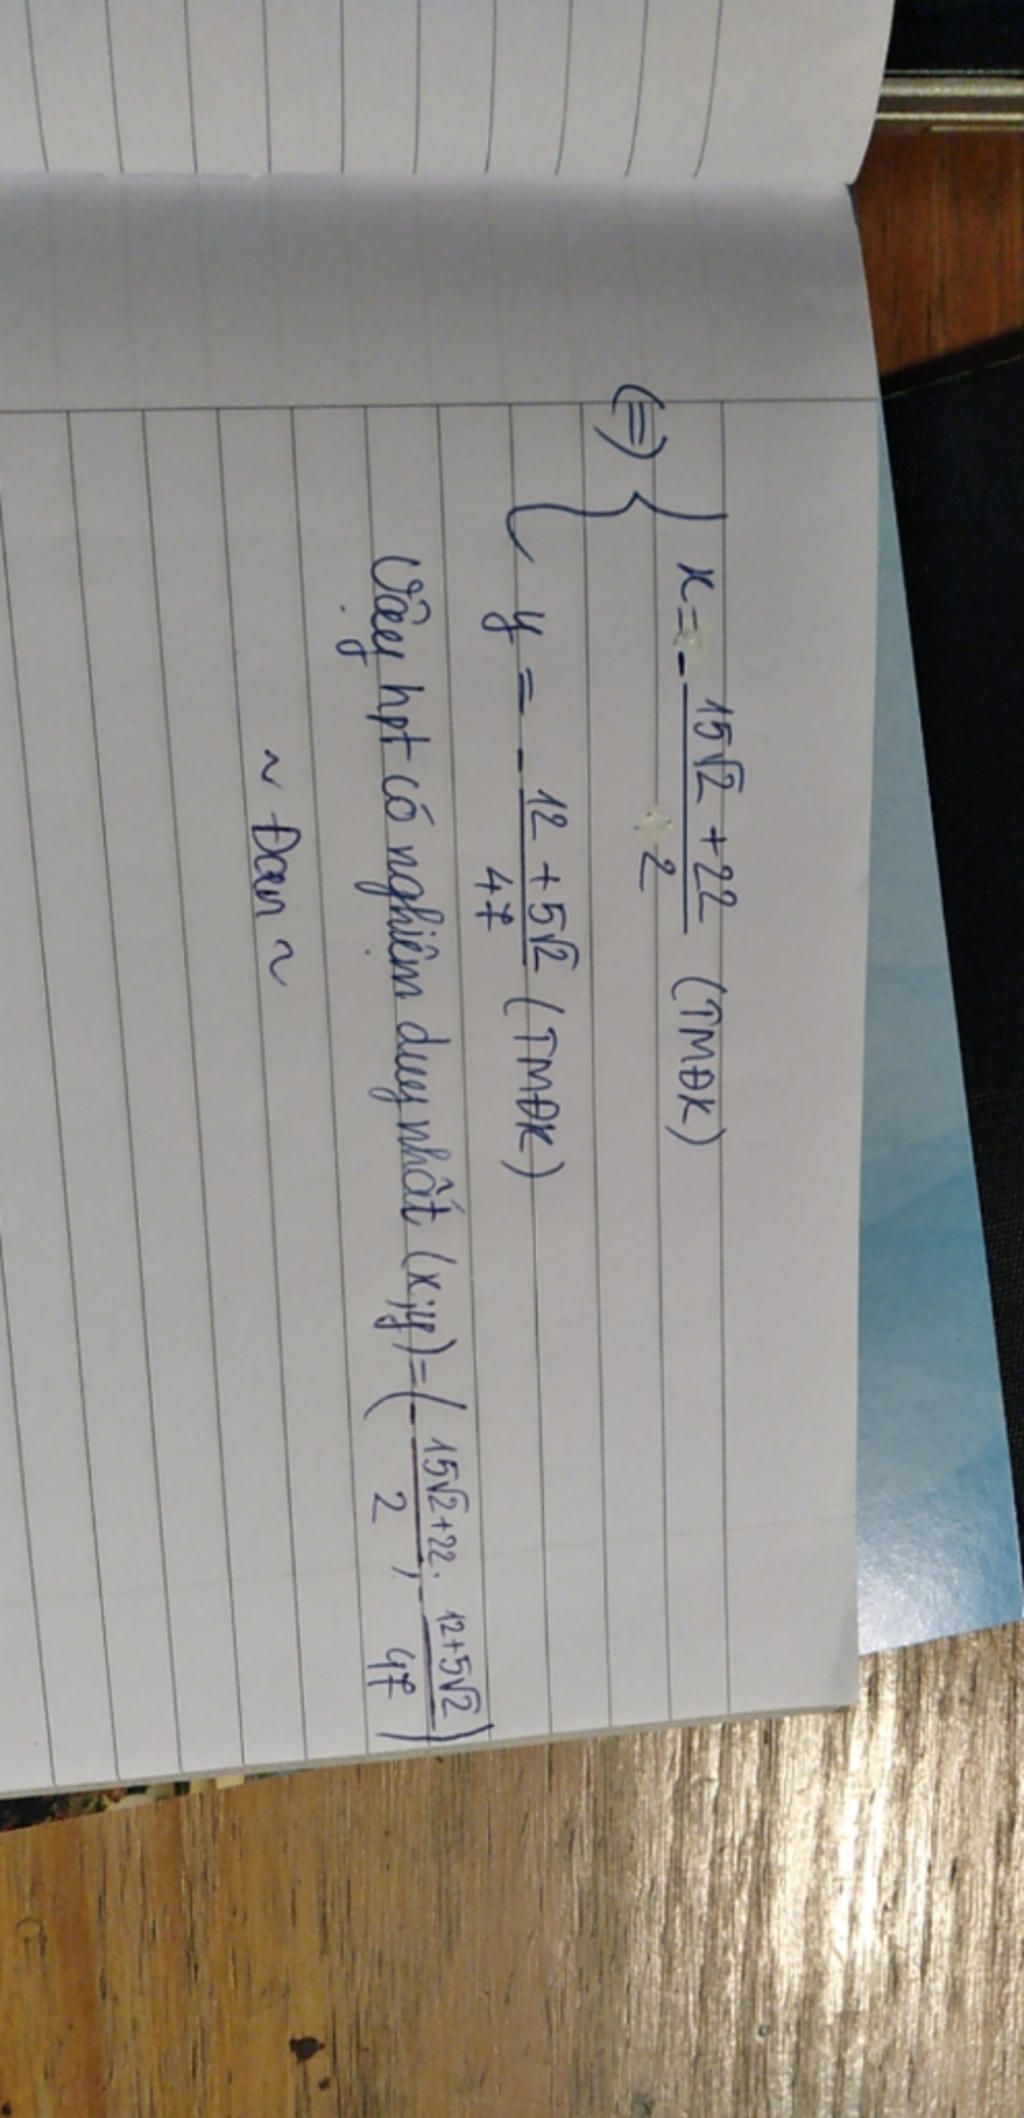 (=) { x = - (15√2 + 22)/2 (TMĐK)
y = - (12 + 5√2)/47 (TMĐK)
Vậy hpt có nghiệm duy nhất (x;y) = (- (15√2+22)/2 ; - (12+5√2)/47)
~ Đan ~